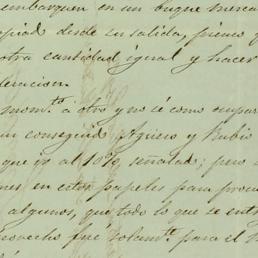 embarquen en un buque merca
desde su salida, pienso
otra cantidad igual y hacer
leracion.
momto á otro y no sé como
un conseguido Agüero y Rubio
que vá al 10%, señalad; pero
nes en estos papeles para procu
algunos, que todo lo que se ent
provecho fué volant.e para el